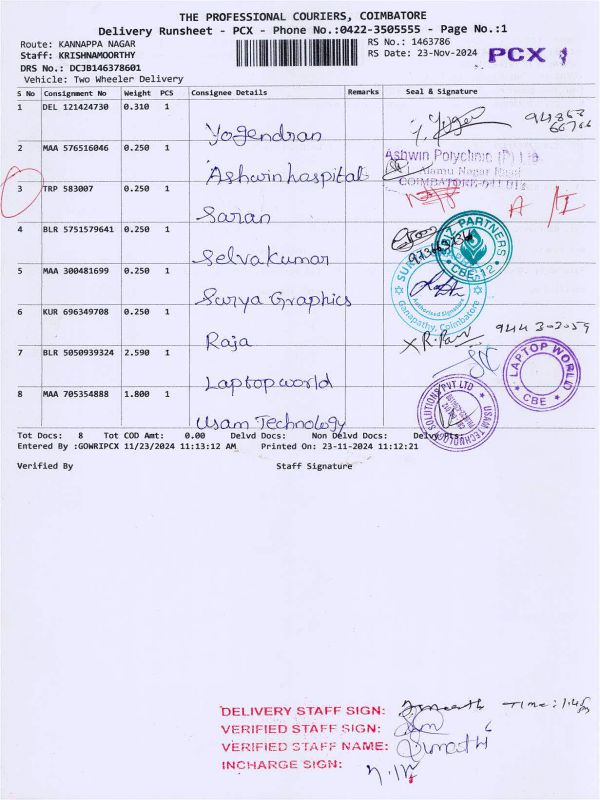 THE PROFESSIONAL COURIERS, COIMBATORE
Delivery Runsheet - PCX - Phone No.:0422-3505555 - Page No.:1
Route: KANNAPPA NAGAR RS No.: 1463786
Staff: KRISHNAMOORTHY RS Date: 23-Nov-2024 PCX
DRS No.: DCJB146378601
Vehicle: Two Wheeler Delivery
S No Consignment No Weight PCS Consignee Details Remarks Seal & Signature
1 DEL 121424730 0.310 1
Yogendran
2 MAA 576516046 0.250 1
Ashwin hospital
Ashwin Polyclinic (P)
3 TRP 583007 0.250 1
Saran
4 BLR 5751579641 0.250 1
Selvakumar
BIZ PARTNERS
CBE-12
5 MAA 300481699 0.250 1
Surya Graphics
Authorised Signature
Ganapathy, Coimbatore
6 KUR 696349708 0.250 1
Raja
7 BLR 5050939324 2.590 1
Laptop world
LAPTOP WORLD
CBE
8 MAA 705354888 1.800 1
Usam Technology
USAM TECHNOLOGY SOLUTIONS PVT LTD
Tot Docs: 8 Tot COD Amt: 0.00 Delvd Docs: Non Delvd Docs: Delvy Pts:
Entered By :GOWRIPCX 11/23/2024 11:13:12 AM Printed On: 23-11-2024 11:12:21
Verified By Staff Signature
DELIVERY STAFF SIGN: Time:
VERIFIED STAFF SIGN:
VERIFIED STAFF NAME:
INCHARGE SIGN: